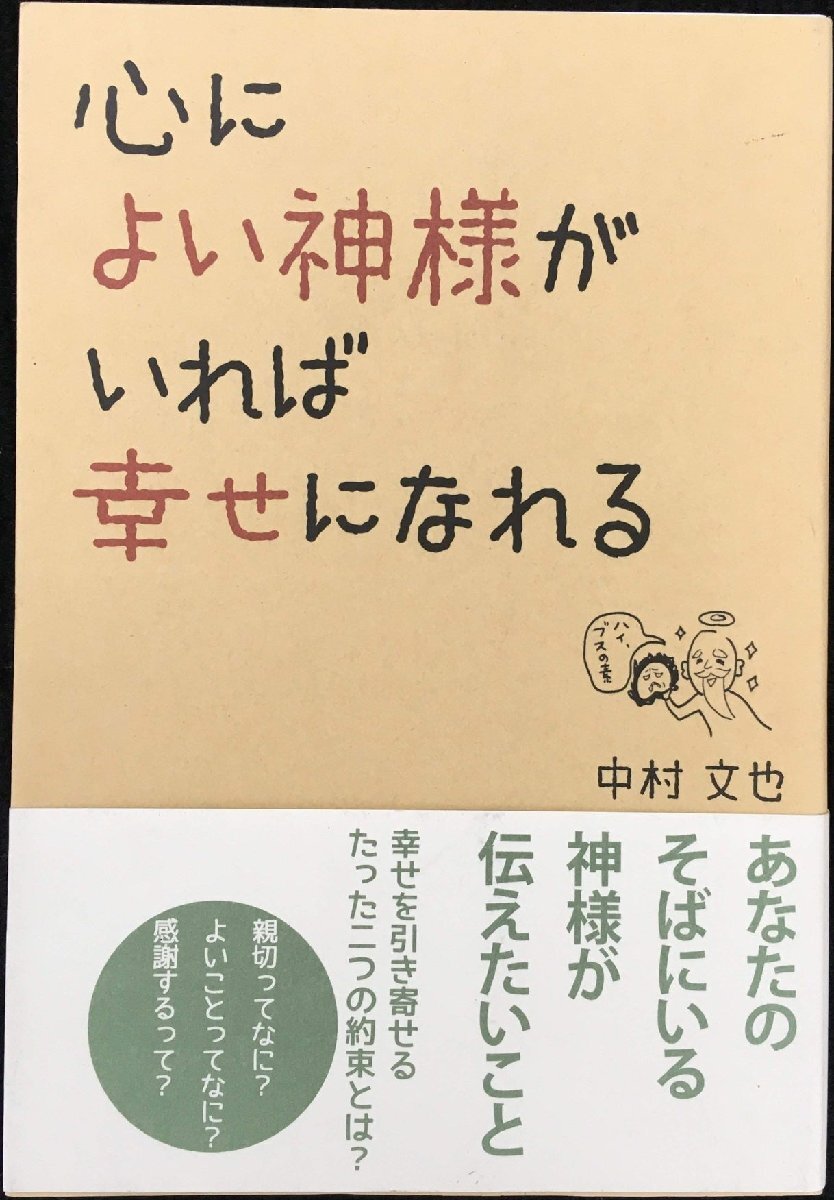 心に
よい神様が
いれば
幸せになれる
ハイ、
ブスの素
中村 文也
あなたの
そばにいる
神様が
伝えたいこと
幸せを引き寄せる
たった二つの約束とは？
親切ってなに？
よいことってなに？
感謝するって？